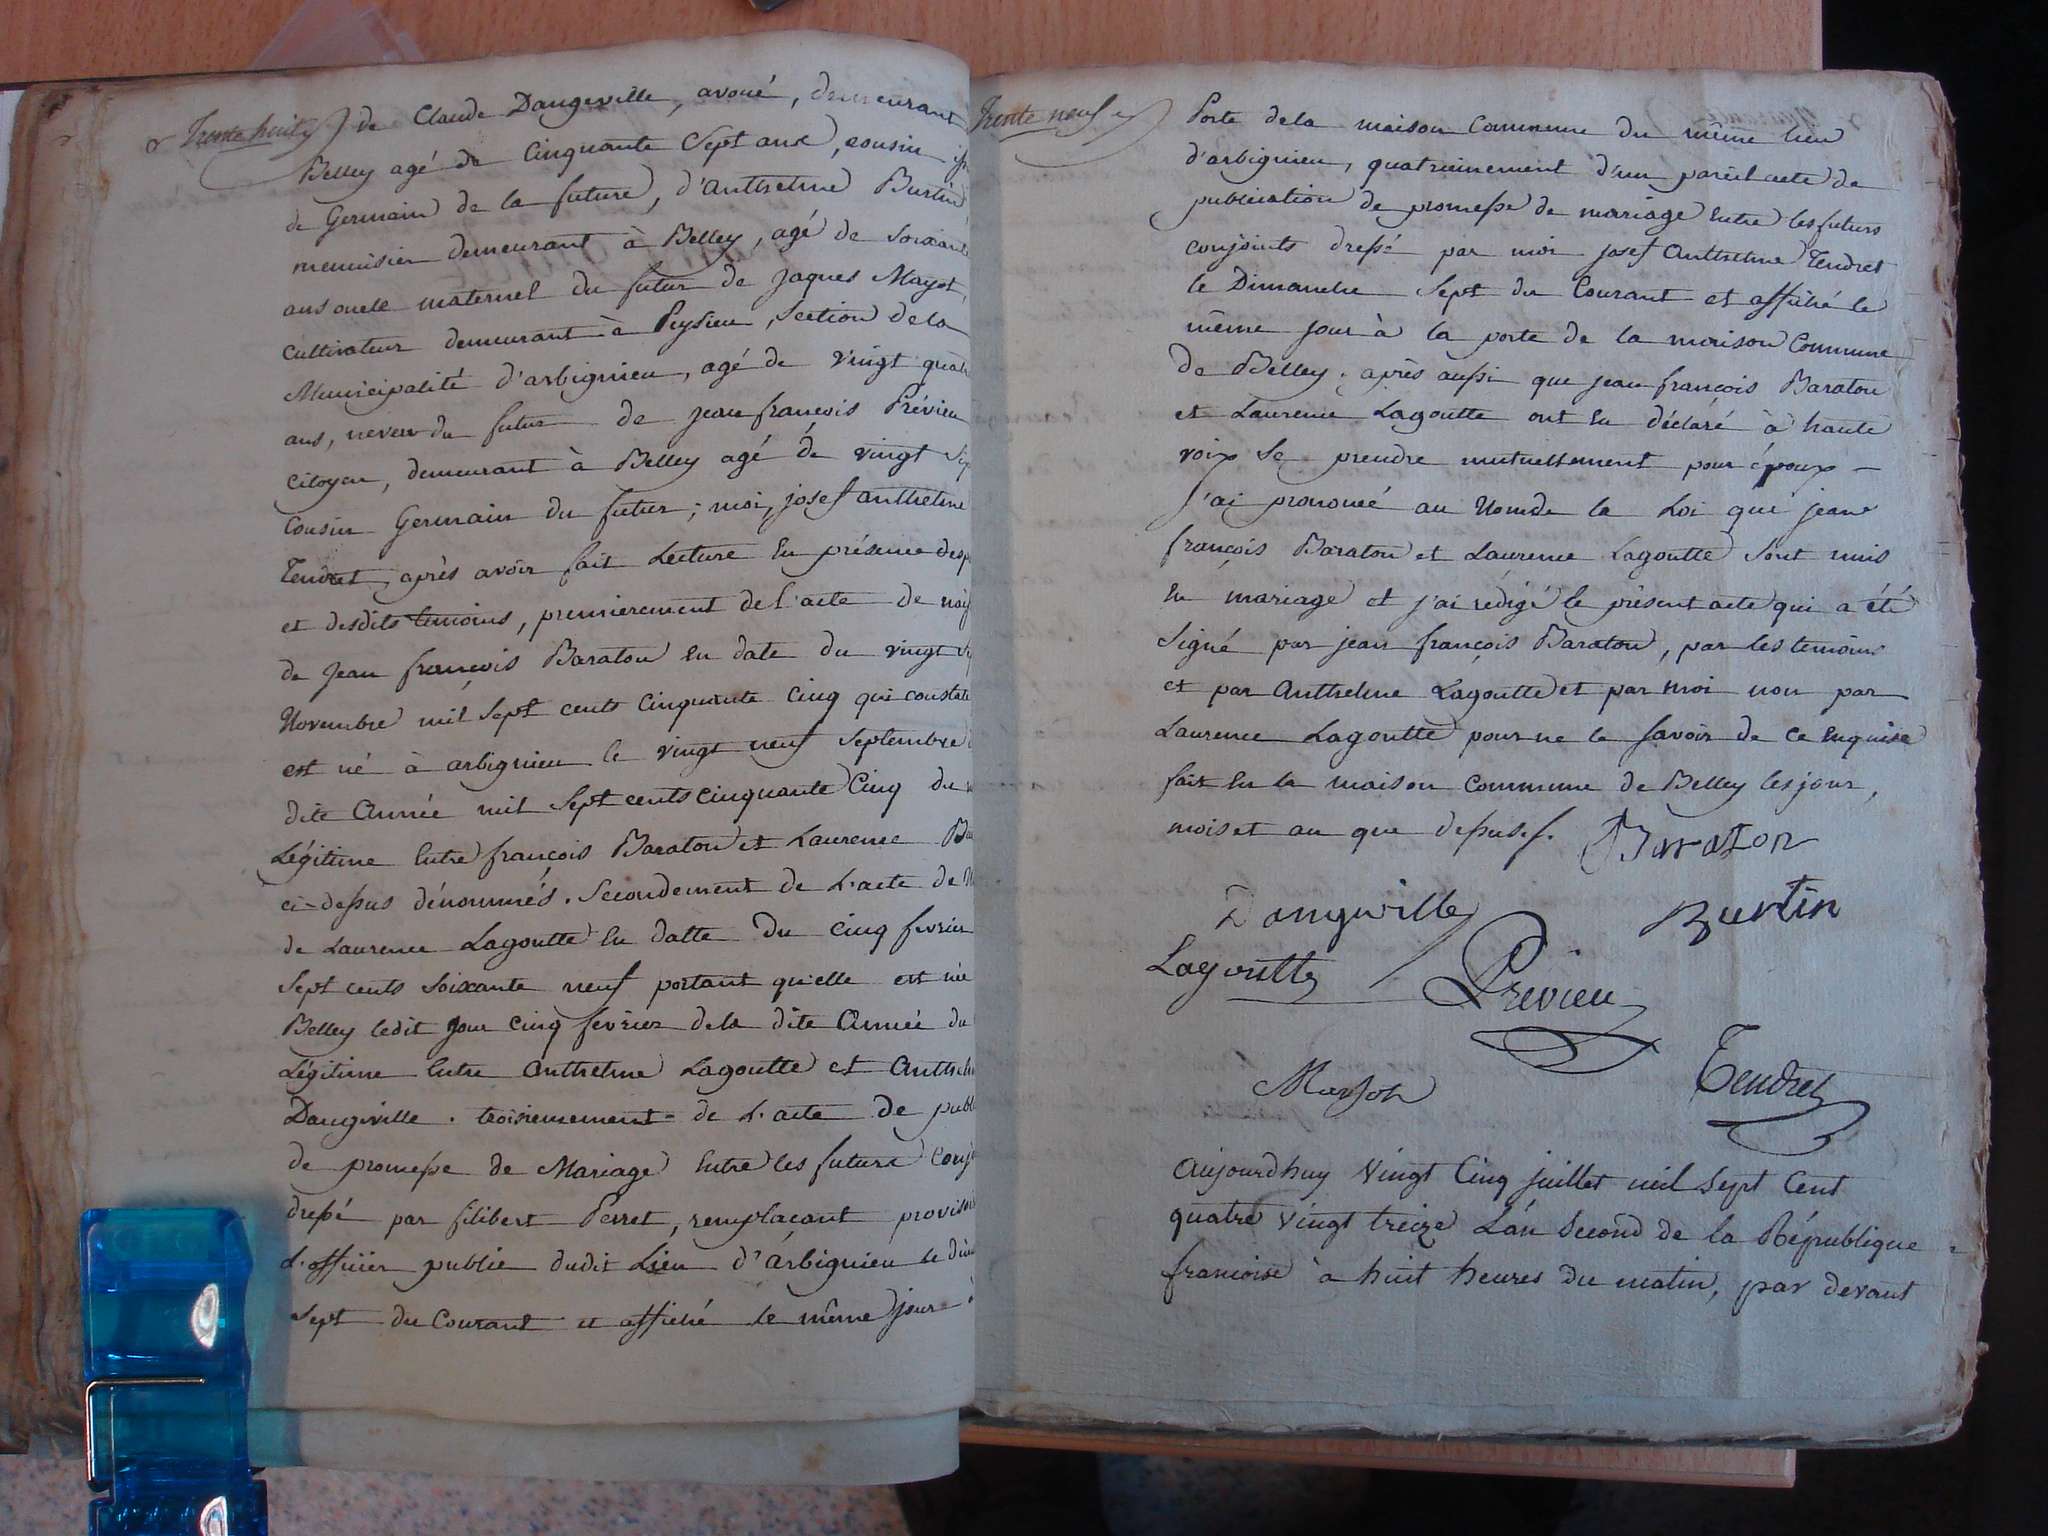 Trente huit
de Claude Dangeville, avoué, demeurant
Belley agé de Cinquante Sept ans, cousin
de Germain de la future, d'Anthelme Burtin
menuisier demeurant à Belley, agé de Soixante
ans oncle maternel du futur de Jaques Mayot,
Cultivateur demeurant à Peysieu, Section de la
Municipalité d'arbignieu, agé de vingt quatre
ans, neveu du futur de Jean françois Prévieu
Citoyen, demeurant à Belley agé de vingt
Cousin Germain du futur; moi, josef anthelme
Tendret, après avoir fait Lecture En présence
et desdits temoins, premierement de l'acte de
de Jean françois Baraton En date du vingt
Novembre mil Sept cents Cinquante Cinq qui constate
est né à arbignieu le vingt neuf Septembre
dite Année mil Sept cents cinquante Cinq du
Légitime Entre françois Baraton et Laurence
ci-dessus dénommés. Secondement de L'acte de
de Laurence Lagoutte En datte du cinq fevrier
Sept cents soixante neuf portant qu'elle est née
Belley ledit jour cinq fevrier de la dite Année du
Légitime Entre Anthelme Lagoutte et
Dangeville. troisiemement de L'acte de
de promesse de Mariage Entre les futurs
dressé par filibert Perret, remplaçant
L'officier public dudit Lieu d'arbignieu le
Sept du Courant et affiché le même jour à
Trente neuf
Porte de la maison Commune du même lieu
d'arbignieu, quatriemement d'un pareil acte de
publication de promesse de mariage Entre les futurs
conjoints dressé par moi josef Anthelme Tendret
le Dimanche Sept du Courant et affiché le
même jour à la porte de la maison Commune
de Belley. après aussi que jean françois Baraton
et Laurence Lagoutte ont Eu déclaré à haute
voix se prendre mutuellement pour époux
j'ai prononcé au Nom de la Loi que jean
françois Baraton et Laurence Lagoutte Sont unis
En mariage et j'ai rédigé le présent acte qui a été
Signé par jean françois Baraton, par les temoins
et par Anthelme Lagoutte et par moi non par
Laurence Lagoutte pour ne le savoir de ce Enquise
fait En la maison Commune de Belley les jour,
mois et an que dessus.
Baraton
Dangeville
Burtin
Lagoutte
Prévieu
Tendret
Aujourdhuy Vingt Cinq juillet mil Sept Cent
quatre Vingt treize L'an Second de la République
francoise à huit heures du matin, par devant